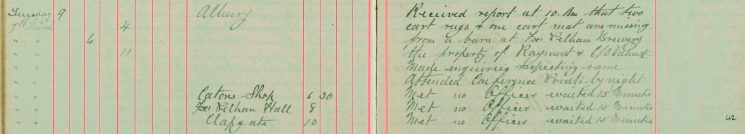 Tuesday 9 Albury Received report at 10. Am that two
4 cart rugs & one cart mat are missing
6 from a barn at Fx Pelham Brewery
11 the property of Rayment & C/o Value
Made enquiries respecting same
Attended Conference Points by night
Catons Shop 6 30 Met no Officer waited 15 Minutes
Fx Pelham Hall 8 Met no Officer waited 15 Minutes
Clapgate 10 Met no Officer waited 15 Minutes
42